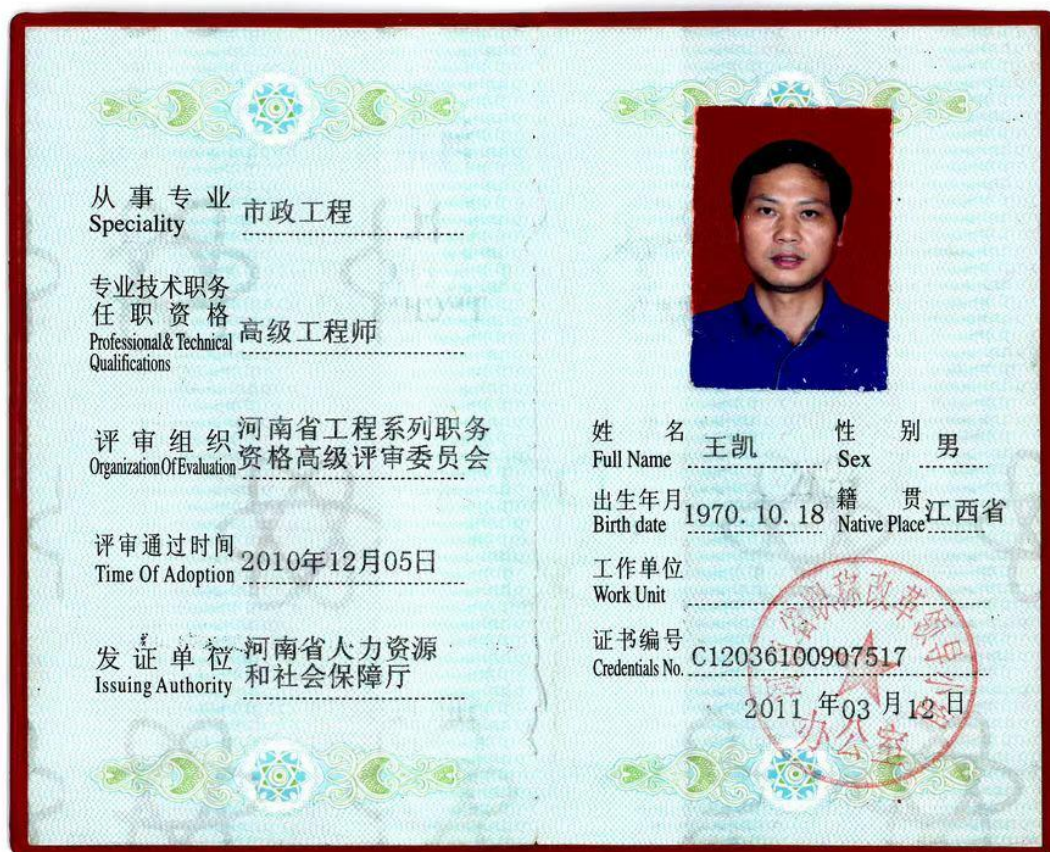 从事专业
Speciality
市政工程
专业技术职务
任职资格
Professional&Technical
Qualifications
高级工程师
评审组织
Organization Of Evaluation
河南省工程系列职务
资格高级评审委员会
评审通过时间
Time Of Adoption
2010年12月05日
发证单位
Issuing Authority
河南省人力资源
和社会保障厅
姓名
Full Name
王凯
性别
Sex
男
出生年月
Birth date
1970.10.18
籍贯
Native Place
江西省
工作单位
Work Unit
证书编号
Credentials No.
C12036100907517
2011年03月12日
河南省职称改革领导小组
办公室